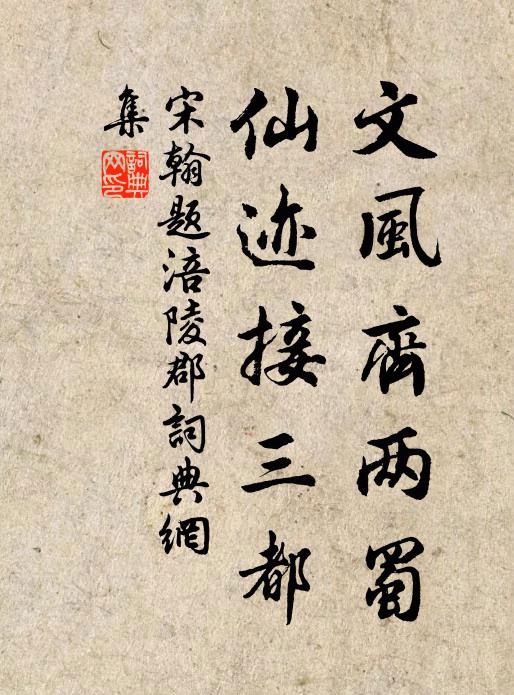 文風齊两蜀
仙迹接三都
宋翰题涪陵郡詞典網
集
詞典
网印